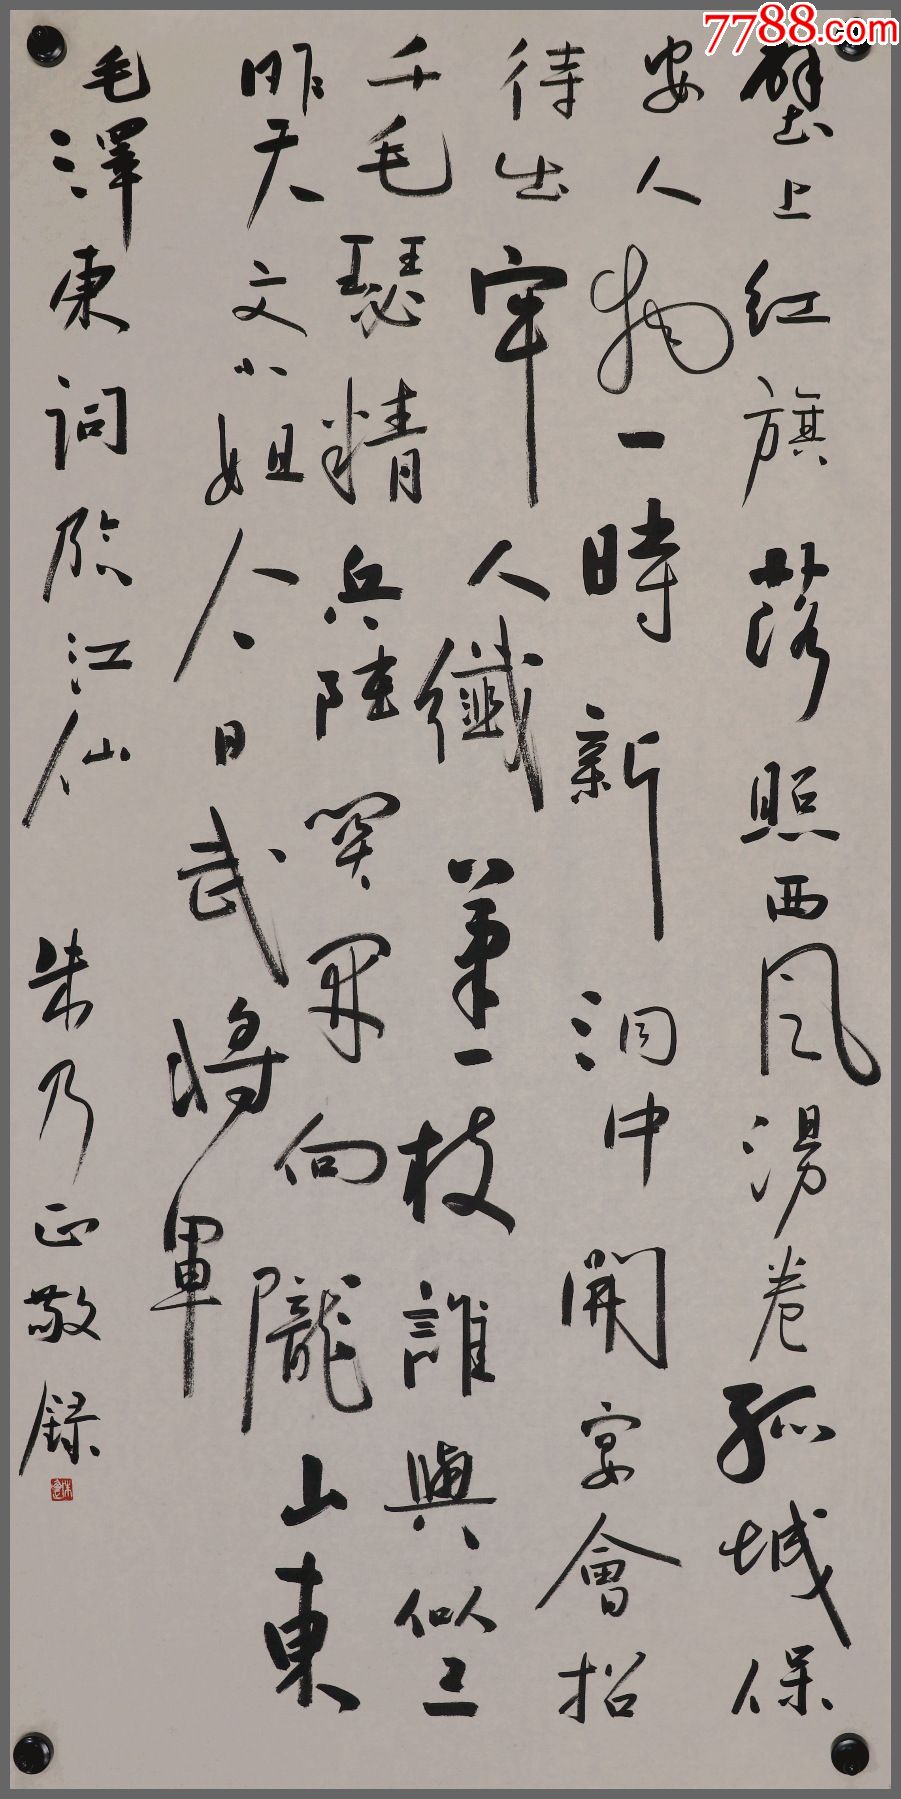 7788.com
壁上红旗落照西风漫卷孤城保
安人物一時新洞中開宴會招
待出牢人纖筆一枝誰與似三
千毛瑟精兵陣圖開向隴山東
昨天文小姐今日武將軍
毛澤東詞臨江仙 朱乃正敬録